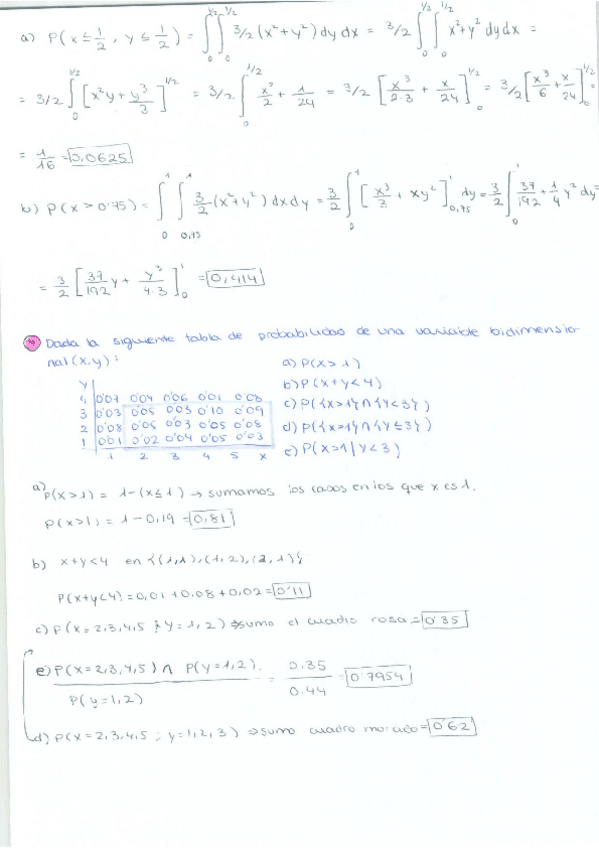 a) P(x ≤ 1/2, y ≤ 1/2) = ∫₀^1/2 ∫₀^1/2 3/2 (x²+y²) dy dx = 3/2 ∫₀^1/2 ∫₀^1/2 x²+y² dy dx =
= 3/2 ∫₀^1/2 [x²y + y³/3]^1/2 = 3/2 ∫₀^1/2 x²/2 + 1/24 = 3/2 [x³/2·3 + x/24]₀^1/2 = 3/2 [x³/6 + x/24]₀^1/2
= 1/16 = 0,0625
b) P(x > 0'75) = ∫₀^1 ∫₀,₇₅^1 3/2 (x²+y²) dx dy = 3/2 ∫₀^1 [x³/3 + xy²]₀,₇₅^1 dy = 3/2 ∫₀^1 37/192 + 1/4 y² dy
= 3/2 [37/192 y + y³/4·3]₀^1 = 0,414
Dada la siguiente tabla de probabilidad de una variable bidimensio-
nal (x,y):
a) P(X>1)
b) P(X+y<4)
c) P({X>1}∩{Y<3})
d) P({X>1}∩{Y≤3})
e) P(X>1 | Y<3)
Y
4 0'07 0'04 0'06 0'01 0'08
3 0'03 0'05 0'03 0'10 0'09
2 0'08 0'05 0'03 0'05 0'08
1 0'01 0'02 0'04 0'05 0'03
1 2 3 4 5 X
a) P(X>1) = 1-(X≤1) → sumamos los casos en los que x es 1.
P(X>1) = 1-0,19 = 0,81
b) x+y<4 en {(1,1),(1,2),(2,1)}
P(x+y<4) = 0,01+0,08+0,02 = 0'11
c) P(X=2,3,4,5 ; Y=1,2) ⇒ sumo el cuadro rosa = 0'35
e) P(X=2,3,4,5) ∩ P(Y=1,2). / P(y=1,2) = 0.35 / 0.44 = 0'7954
d) P(X=2,3,4,5 ; y=1,2,3) ⇒ sumo cuadro morado = 0'62